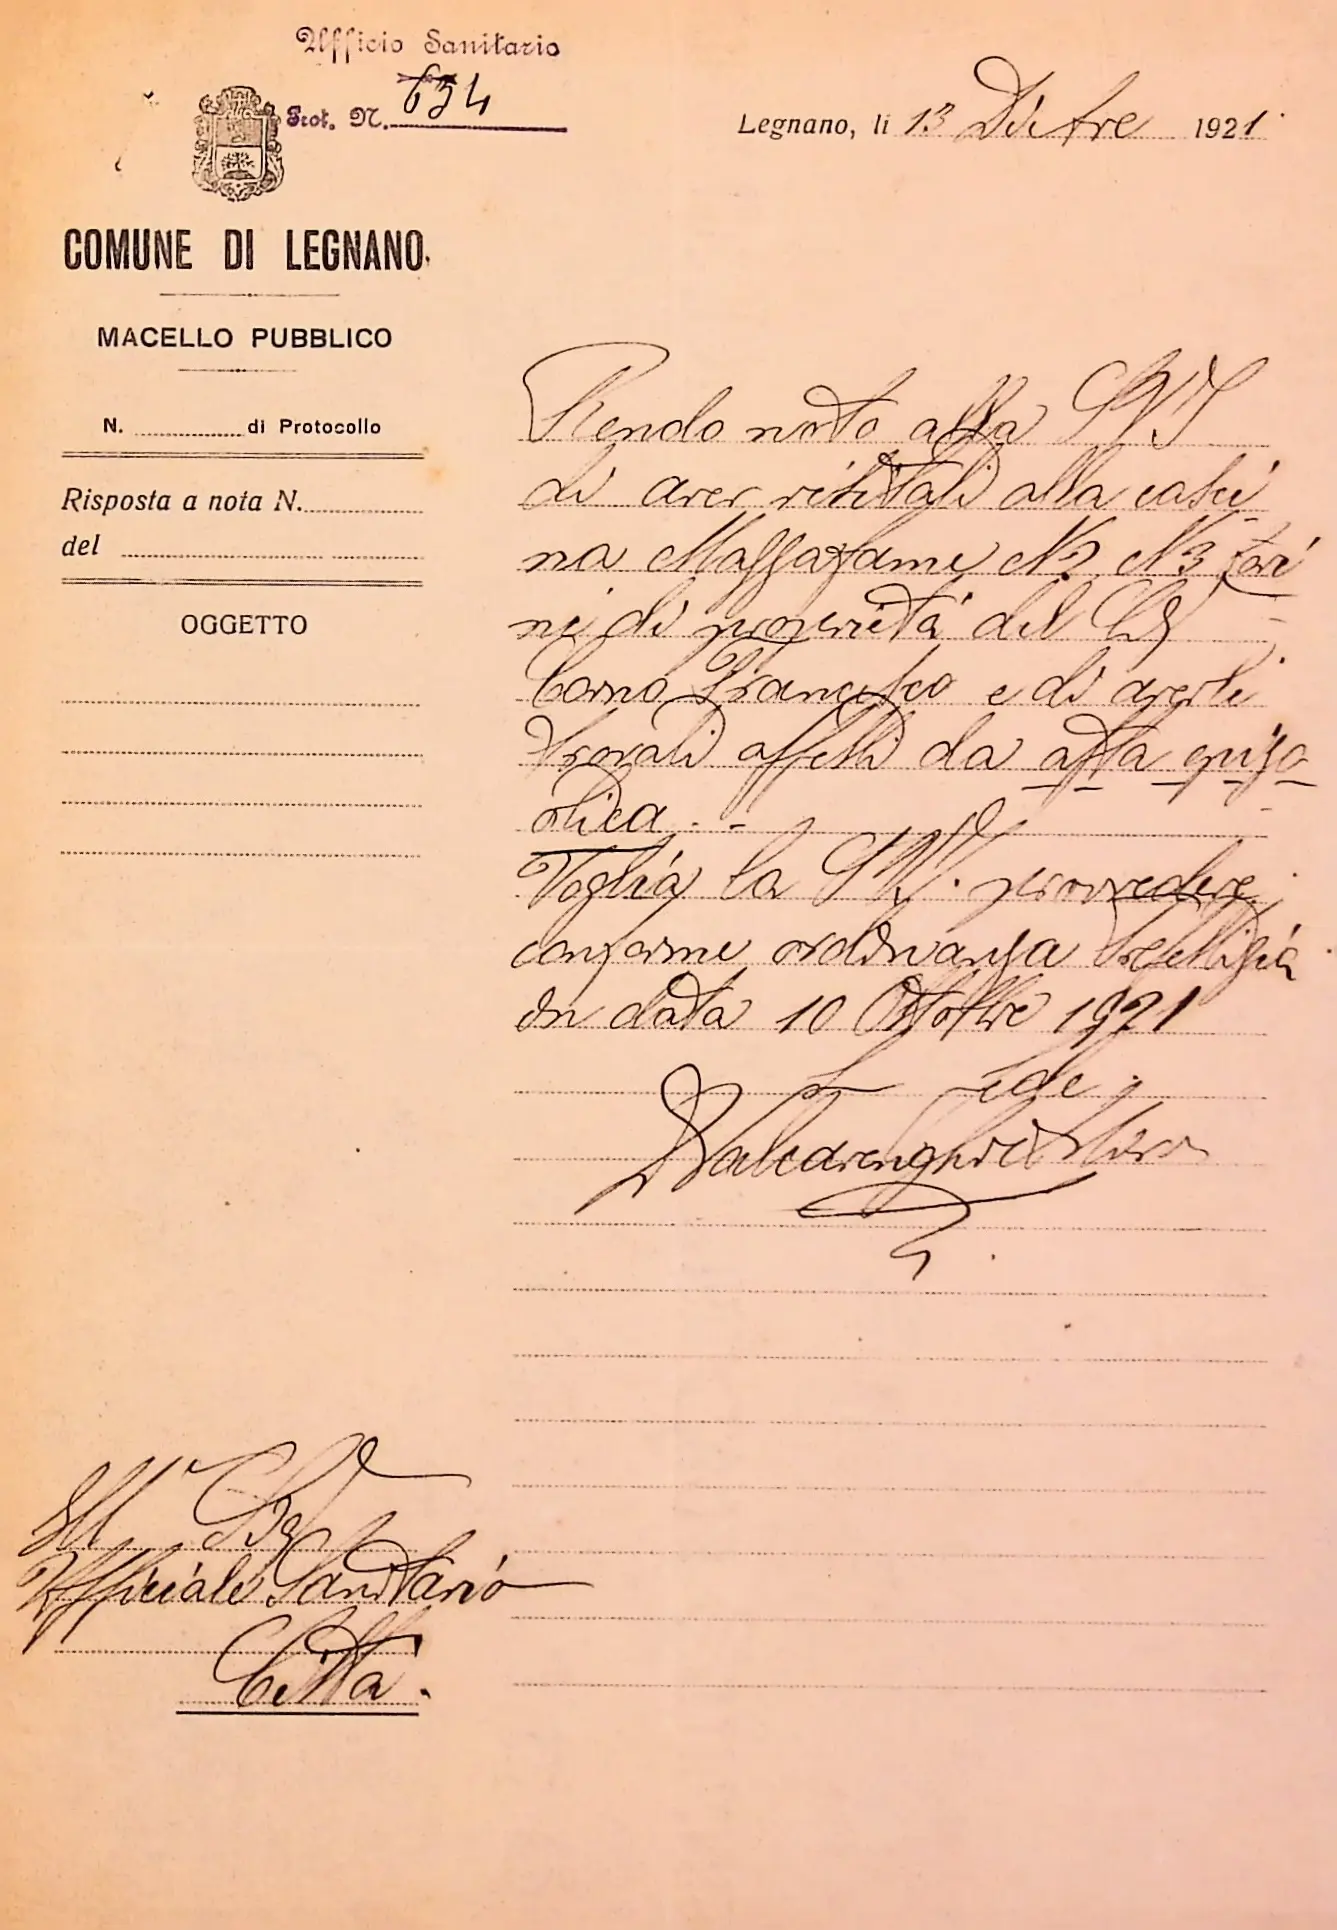 Ufficio Sanitario
Prot. N. 634
Legnano, li 13 Dicbre 1921
COMUNE DI LEGNANO
MACELLO PUBBLICO
N. di Protocollo
Risposta a nota N.
del
OGGETTO
Rendo noto alla S.V.I
di aver visitati alla casci
na Mazzafame N2 N3 
ni di proprietà del Sig
Corno Francesco e di averli
trovati affetti da afta epizo
otica. -
Voglia la S.V. provvedere
conforme ordinanza Prefettizia
in data 10 Ottobre 1921
In fede
Ill Sig
Ufficiale Sanitario
Città.